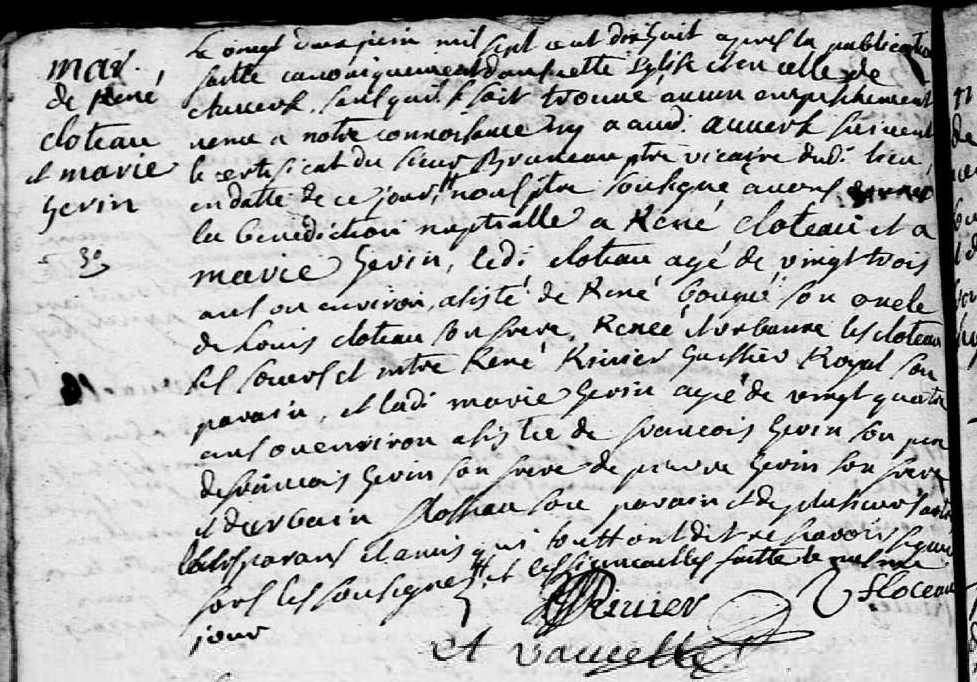 mar.
de René
cloteau
et marie
gerin
3o
Le vingt deux juin mil sept cent dix huit apres la publication
faitte canoniquement dans cette Eglise et en celle de
sans qu'il se soit trouvé aucun empeschement
venu a notre connoissance ny audi.
le certificat du sieur Bruneau ptre vicaire dudi. lieu
en datte de ce jour, nous ptre sousigné avons donné
la benediction nuptialle a René cloteau et a
marie gerin, ledi cloteau agé de vingt trois
ans ou environ, asisté de René son oncle
de Louis cloteau son frere, Reneé et urbanne les cloteau
ses soeurs et mtre René Rivier greffier Royal son
parain, et ladi marie gerin agée de vingt quatre
ans ou environ asistée de francois gerin son pere
de francois gerin son frere de pierre gerin son frere
et d'urbain son parain et de plusieurs autre
parans et amis qui touts ont dit ne scavoir signer
fors les soussignes et les fiancailles faitte le mesme
jour
Rivier
et